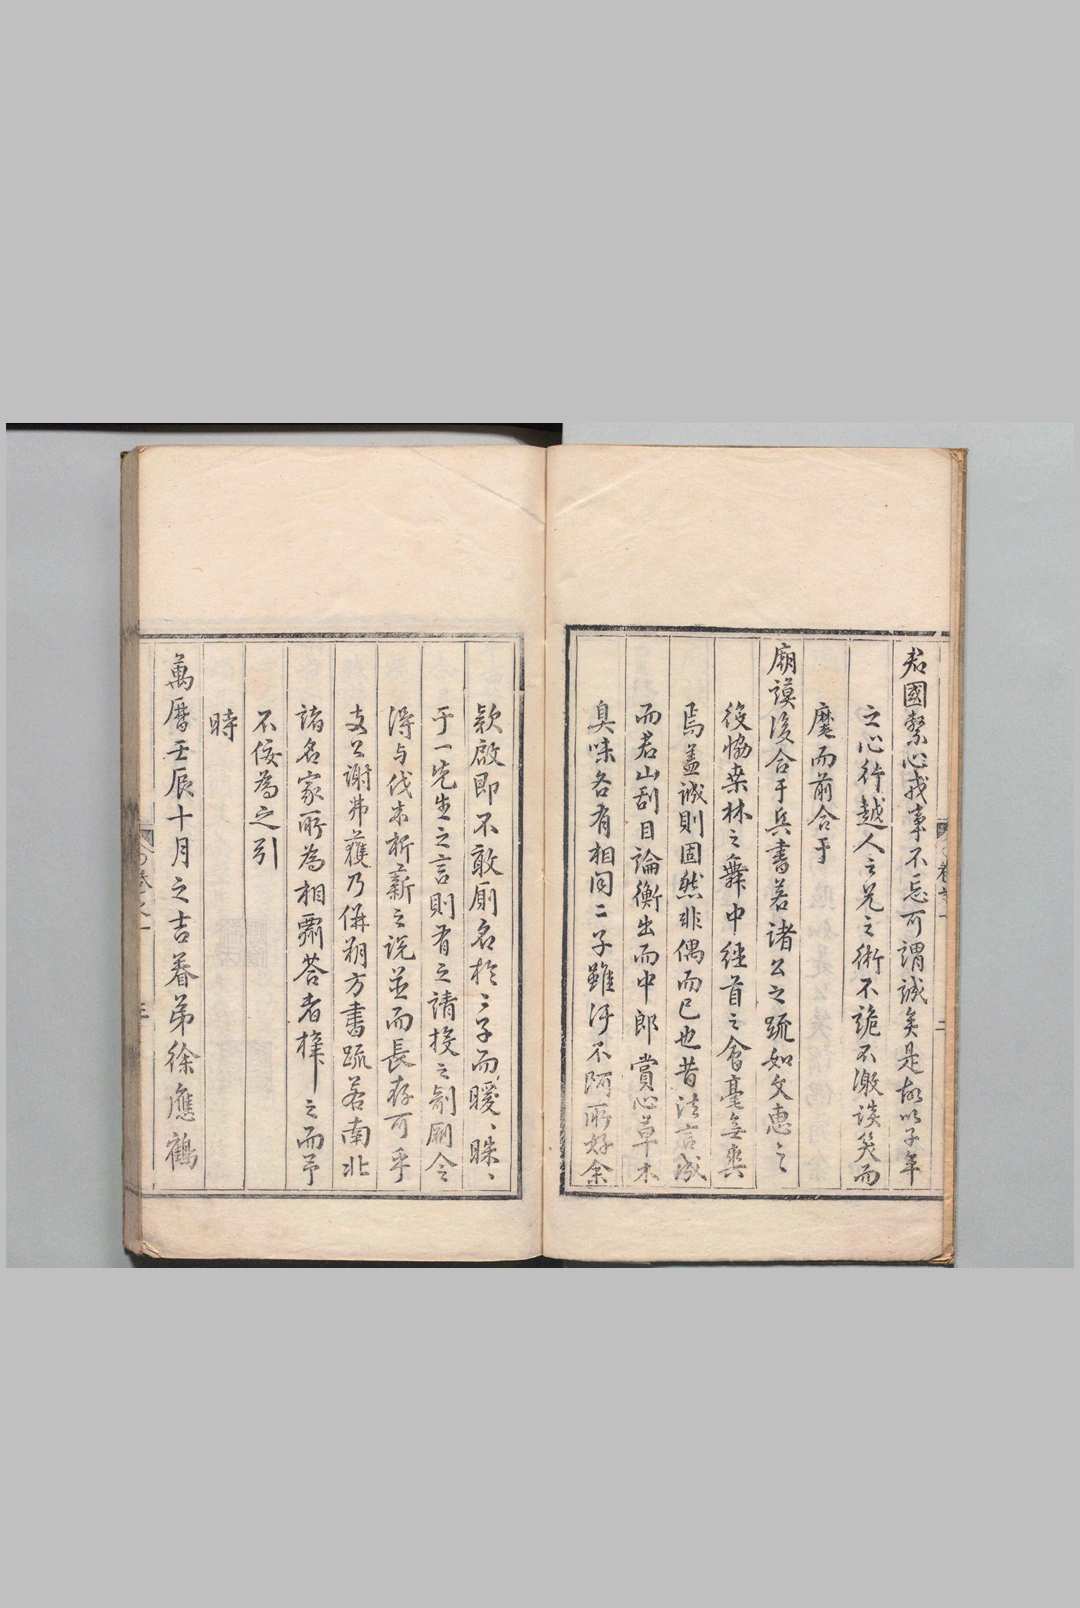 君國繫心我事不忘可謂誠矣是故以子年
之心行越人之兄之術不詭不激談笑而
麾而前合于
廟謨後合于兵書若諸公之疏如文惠之
後恊桒林之舞中經首之會毫無爽
焉盖誠則固然非偶而已也昔法言成
而君山刮目論衡出而中郎賞心草木
臭味各有相同二子雖汙不阿所好余
欵啟即不敢廁名於二子而暖、姝、
于一先生之言則有之請授之剞厠令
得与伐木析薪之説並而長存可乎
支公謝弗獲乃併朔方書疏若南北
諸名家所為相酬荅者梓之而予
不佞為之引
時
萬曆壬辰十月之吉眷弟徐應鶴